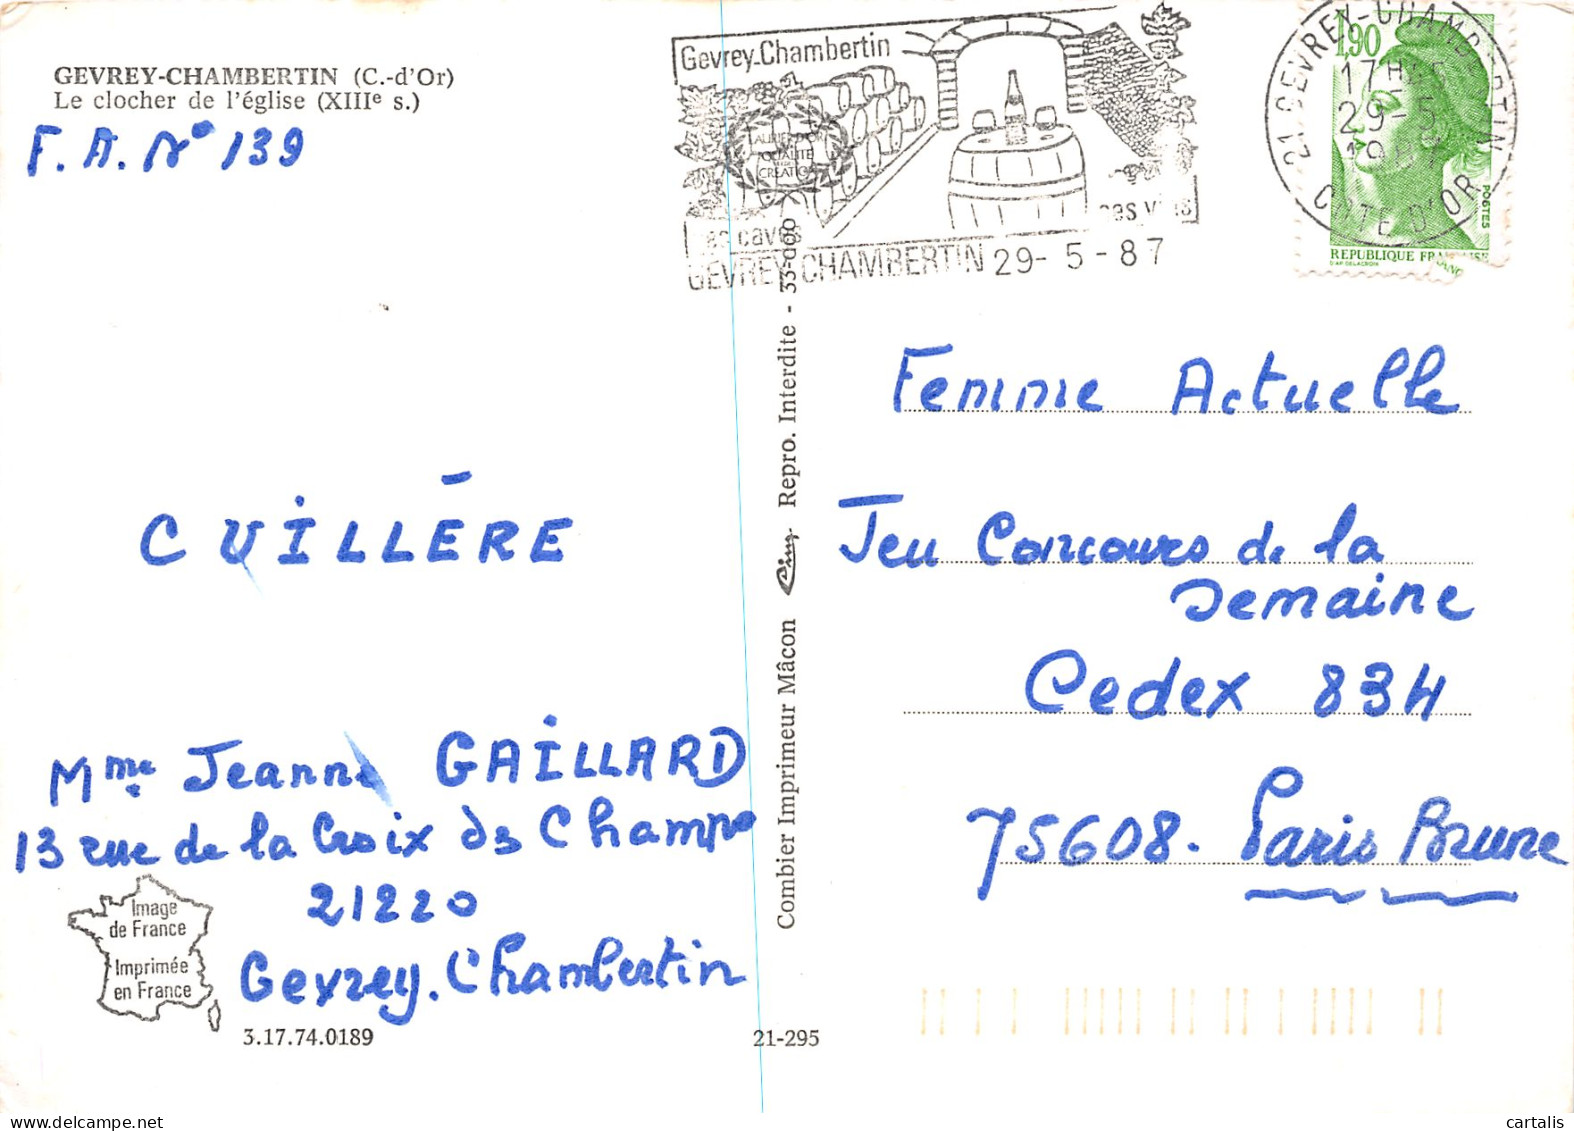 GEVREY-CHAMBERTIN (C.-d'Or)
Le clocher de l'église (XIIIe s.)
F. A. N° 139
CUILLÈRE
Mme Jeanne GAILLARD
13 rue de la Croix des Champs
21220
Gevrey-Chambertin
Image
de France
Imprimée
en France
3.17.74.0189
21-295
Combier Imprimeur Mâcon Cim Repro. Interdite - 33-000
Gevrey-Chambertin
LAURIER D'OR
QUALITE
CREATION
ses caves ses vins
GEVREY-CHAMBERTIN 29-5-87
21 GEVREY-CHAMBERTIN
17H
29-5
1987
COTE D'OR
1,90
POSTES
REPUBLIQUE FRANÇAISE
D'AP. DELACROIX
Femme Actuelle
Jeu Concours de la
Semaine
Cedex 834
75608. Paris Brune
cartalis